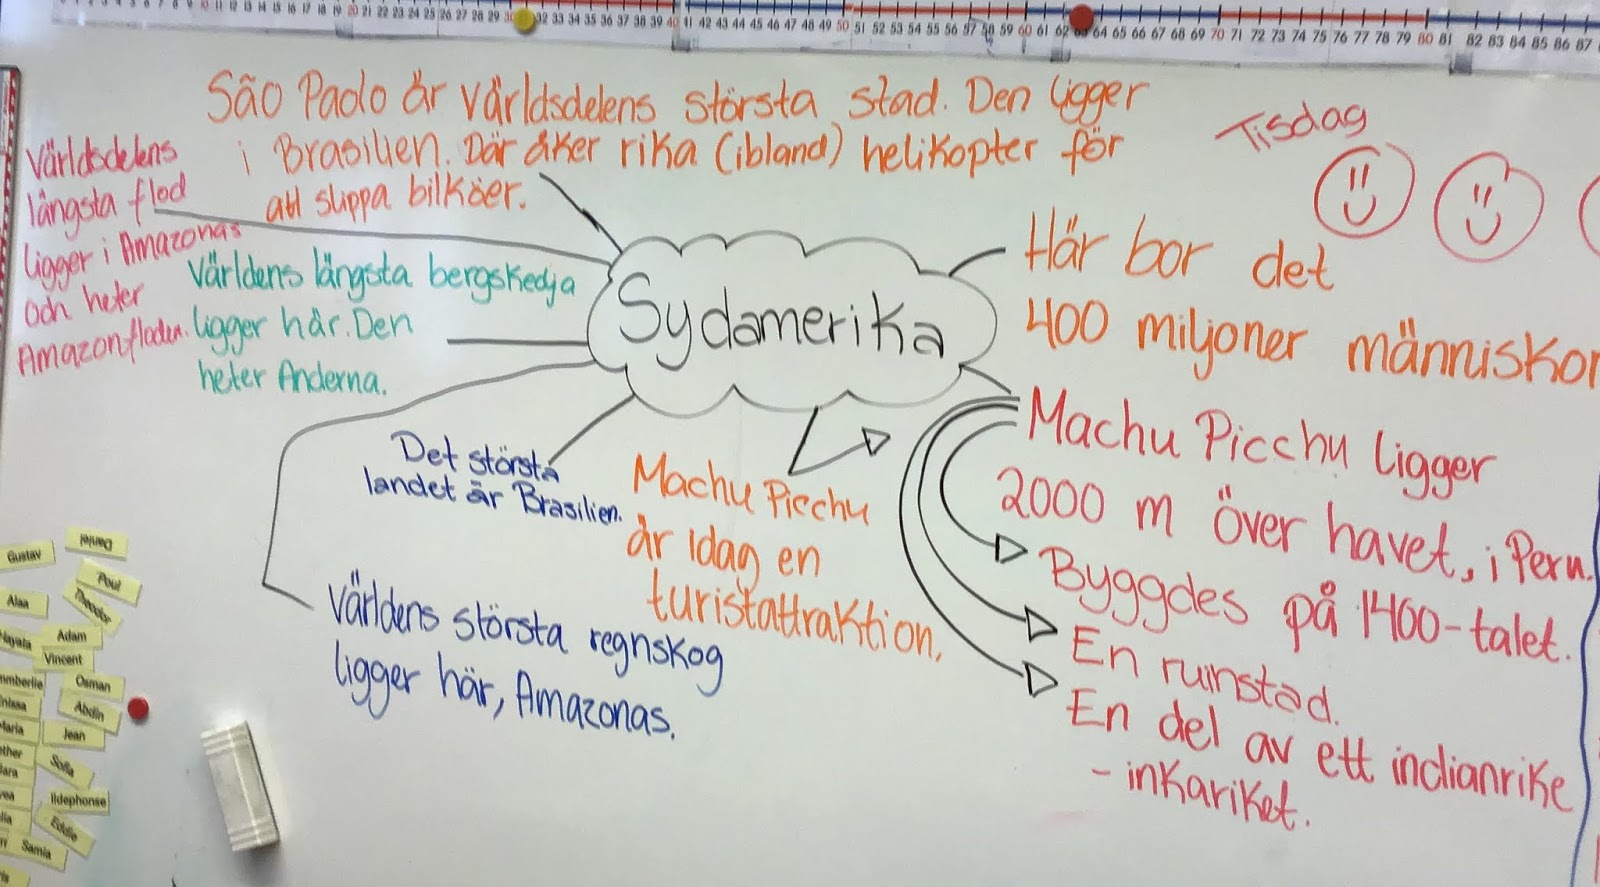 41 42 43 44 45 46 47 48 49 50 51 52 53 54 55 56 57 58 59 60 61 62 63 64 65 66 67 68 69 70 71 72 73 74 75 76 77 78 79 80 81 82 83 84 85 86 87
São Paolo är världsdelens största stad. Den ligger
i Brasilien. Där åker rika (ibland) helikopter för
att slippa bilköer.
Tisdag
Världsdelens
längsta flod
ligger i Amazonas
och heter
Amazonfloden.
Världens längsta bergskedja
ligger här. Den
heter Anderna.
Sydamerika
Här bor det
400 miljoner människor
Det största
landet är Brasilien.
Machu Picchu
är idag en
turistattraktion.
Machu Picchu ligger
2000 m över havet, i Peru.
Byggdes på 1400-talet.
En ruinstad.
En del av ett indianrike
- inkariket.
Världens största regnskog
ligger här, Amazonas.
Gustav
Daniel
Poul
Alaa
Theodor
Adam
Vincent
Osman
Abdin
Jean
Sofia
Ildephonse
Eddie
Samia